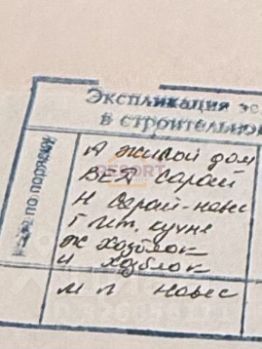 Экспликация эс
в строительно
по порядку
А жилой дом
ВЕД сарай
Н Сарай-навес
Г лит. кухне
Ж хозблок
И хозблок
М П навес